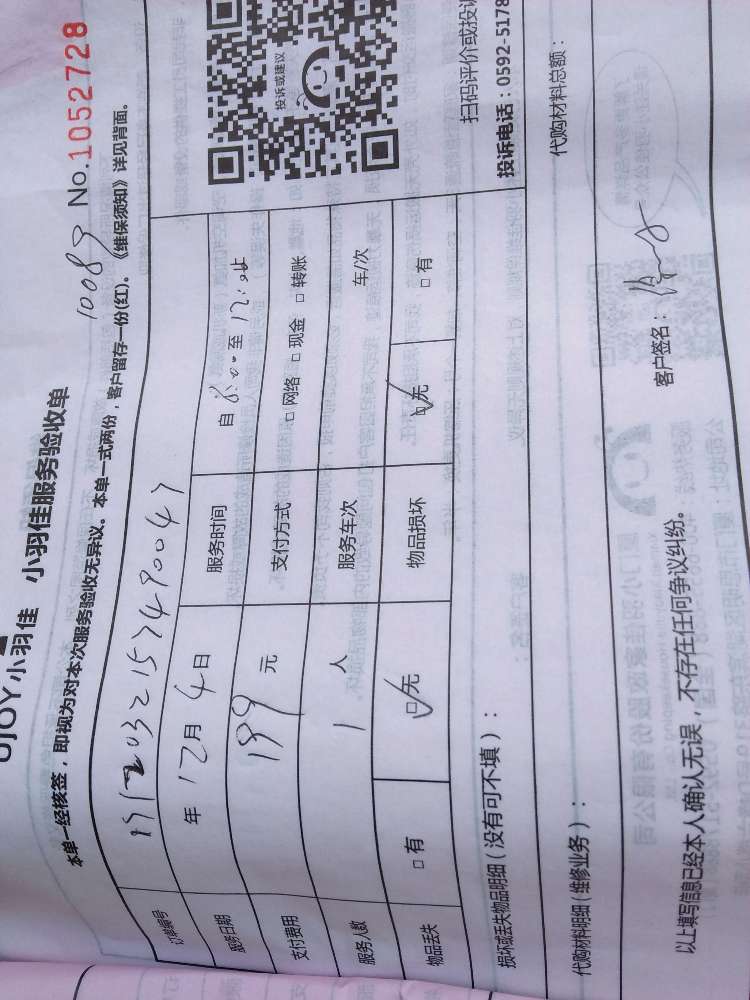 小羽佳 小羽佳服务验收单
10089 No.1052728
本单一经核签，即视为对本次服务验收无异议。本单一式两份，客户留存一份(红)。《维保须知》详见背面。
订单编号
服务日期 年 12月 4日 服务时间 自 8:00 至
支付费用 199 元 支付方式 □网络 □现金 □转账
服务人数 1 人 服务车次 车/次
物品丢失 □有 □无 物品损坏 □无 □有
损坏或丢失物品明细（没有可不填）：
投诉或建议
扫码评价或投诉
投诉电话：0592-5178
代购材料明细（维修业务）： 代购材料总额：
以上填写信息已经本人确认无误，不存在任何争议纠纷。 客户签名：